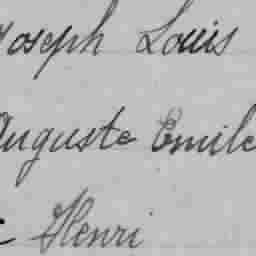 Joseph Louis
Auguste Emile
Henri